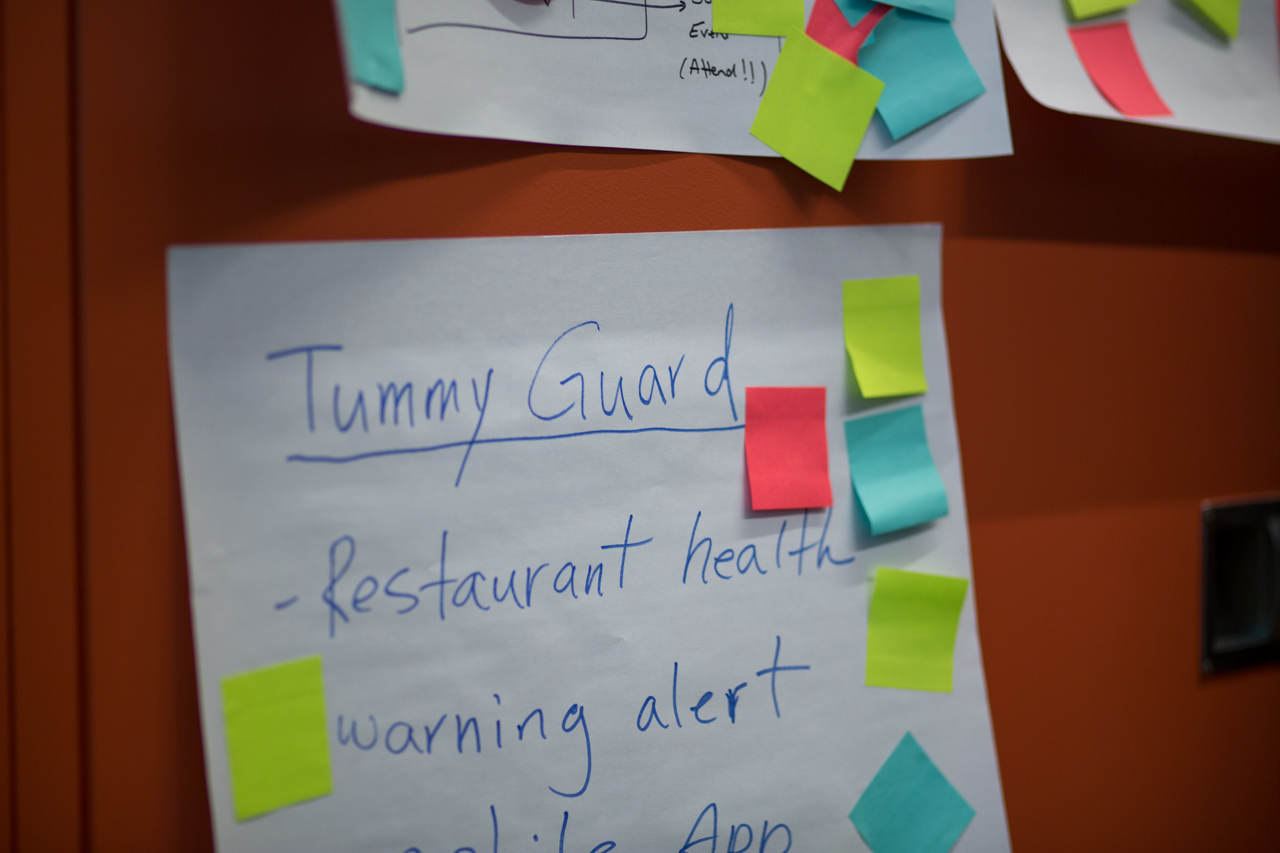 Even
(Attend!!)
Tummy Guard
- Restaurant health
warning alert
mobile App